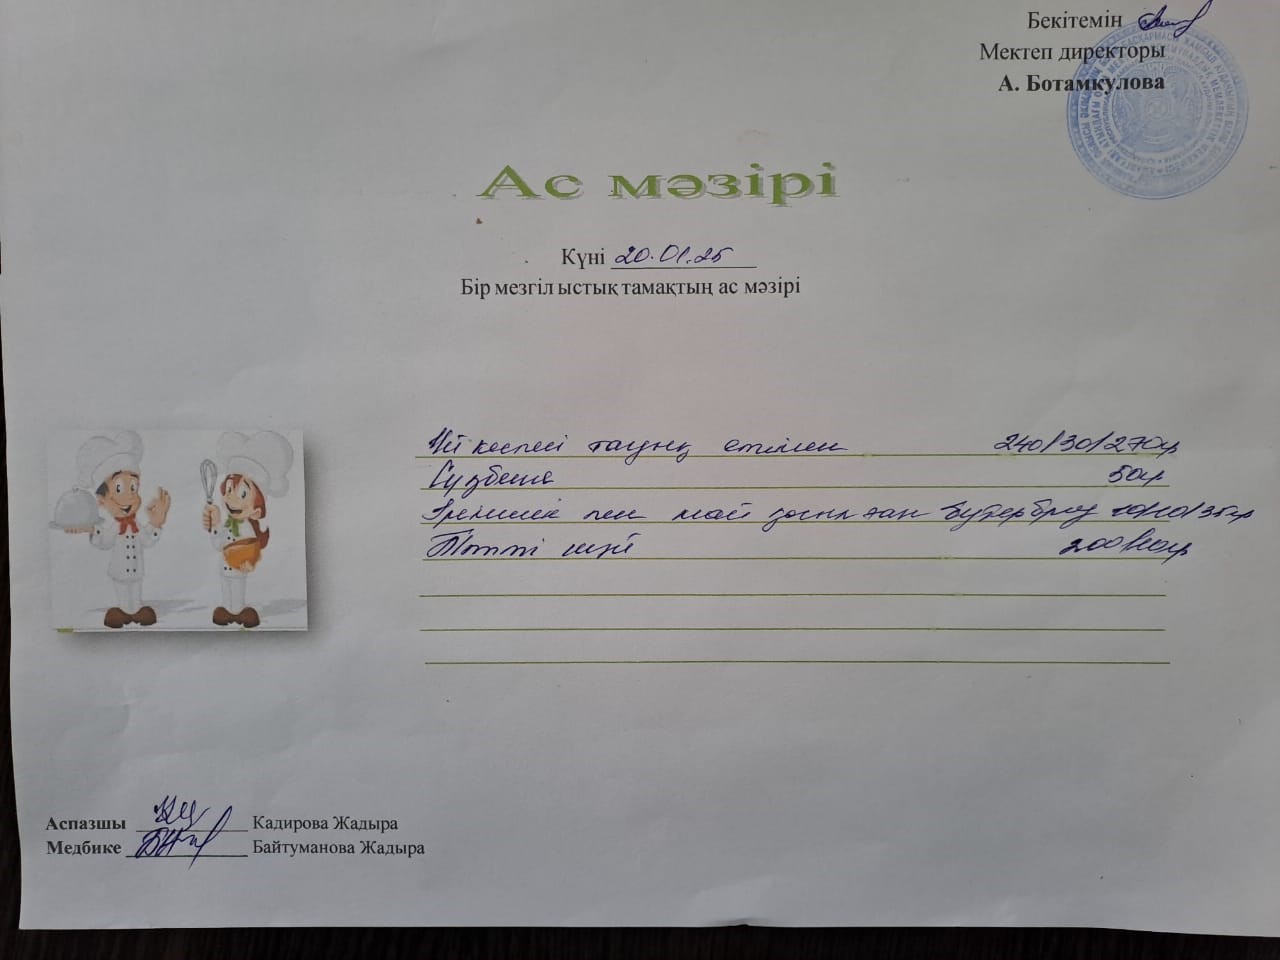 Бекітемін
Мектеп директоры
А. Ботамкулова
Ас мәзірі
Күні 20.01.25
Бір мезгіл ыстық тамақтың ас мәзірі
Үй кеспесі тауық етімен 240/30/270гр
Сузбеше 50гр
Ірімшік пен май қосылған бутерброд 10/10/35гр
Тәтті шәй 200/10гр
Аспазшы Кадирова Жадыра
Медбике Байтуманова Жадыра